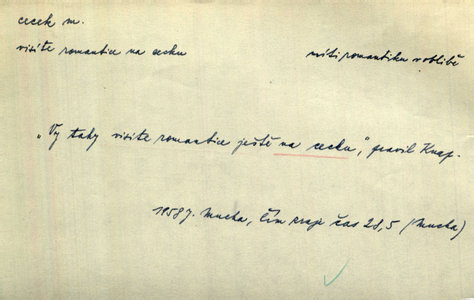 cecek m.
visíte romantice na cecku míti romantiku v oblibě
"Vy taky visíte romantice ještě na cecku", pravil Knap.
1958 J. Mucha, Čím zraje čas 28,5 (Mucha)